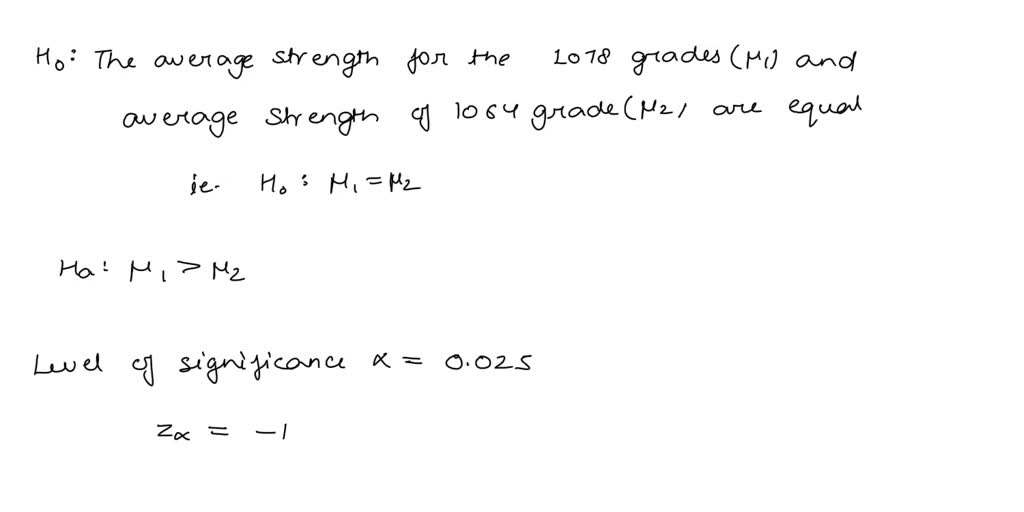 H₀: The average strength for the 1078 grades (μ₁) and
average strength of 1064 grade (μ₂) are equal
ie. H₀ : μ₁ = μ₂
Ha: μ₁ > μ₂
Level of significance α = 0.025
Zα = -1